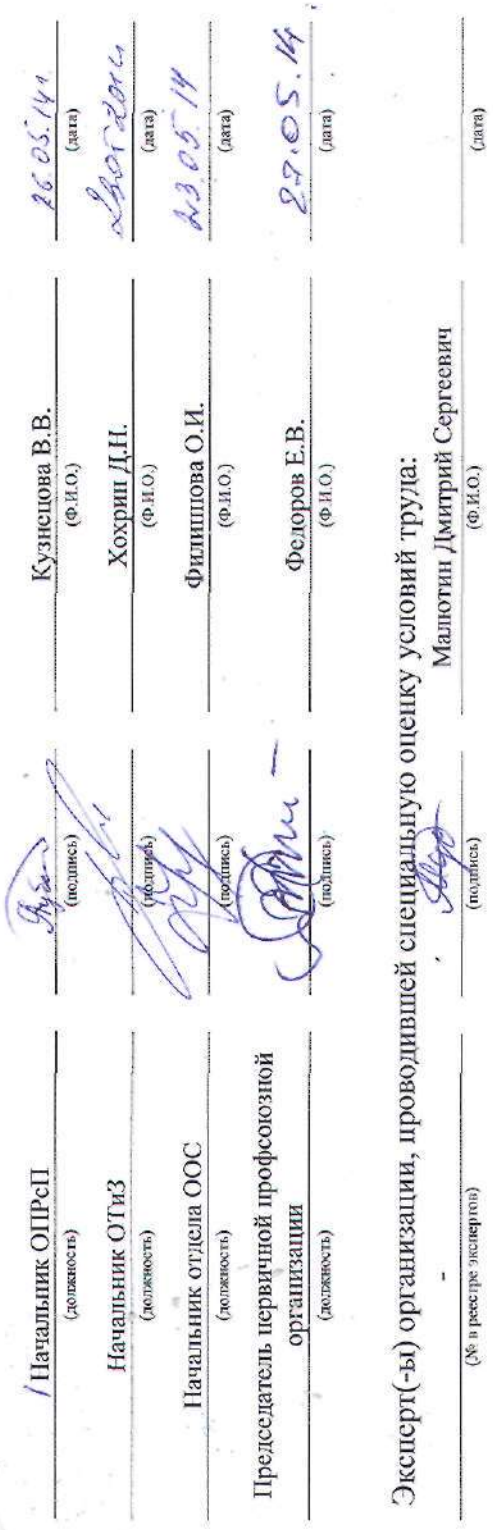 Начальник ОПРсП Кузнецова В.В. 26.05.14г.
(должность) (подпись) (Ф.И.О.) (дата)
Начальник ОТиЗ Хохрин Д.Н.
(должность) (подпись) (Ф.И.О.) (дата)
Начальник отдела ООС Филиппова О.И. 23.05.14
(должность) (подпись) (Ф.И.О.) (дата)
Председатель первичной профсоюзной
организации Федоров Е.В. 27.05.14
(должность) (подпись) (Ф.И.О.) (дата)
Эксперт(-ы) организации, проводившей специальную оценку условий труда:
- Малютин Дмитрий Сергеевич
(№ в реестре экспертов) (подпись) (Ф.И.О.) (дата)